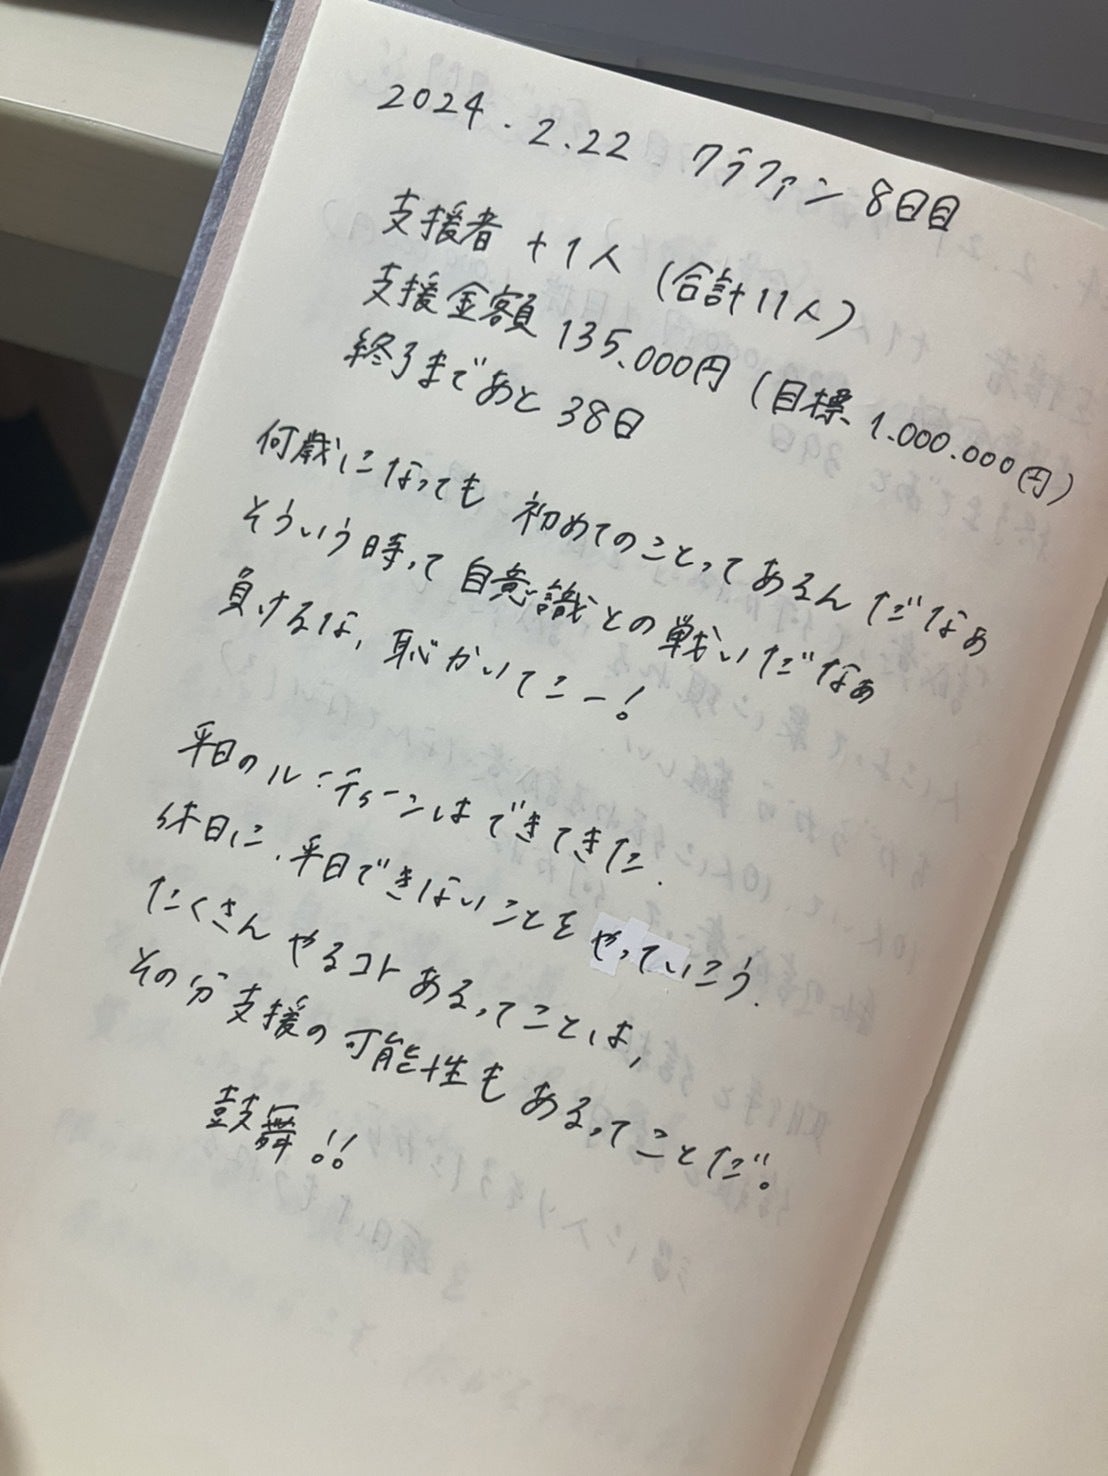 2024.2.22 クラファン 8日目
支援者 +1人 (合計11人)
支援金額 135.000円 (目標 1.000.000円)
終了まであと 38日
何歳になっても 初めてのことってあるんだなぁ
そういう時って 自意識との戦いだなぁ
負けるな、恥かいてこー!
平日のルーティーンはできてきた.
休日に、平日できないことをやっていこう.
たくさん やるコトあるってことは,
その分 支援の可能性も あるってことだ。
鼓舞!!